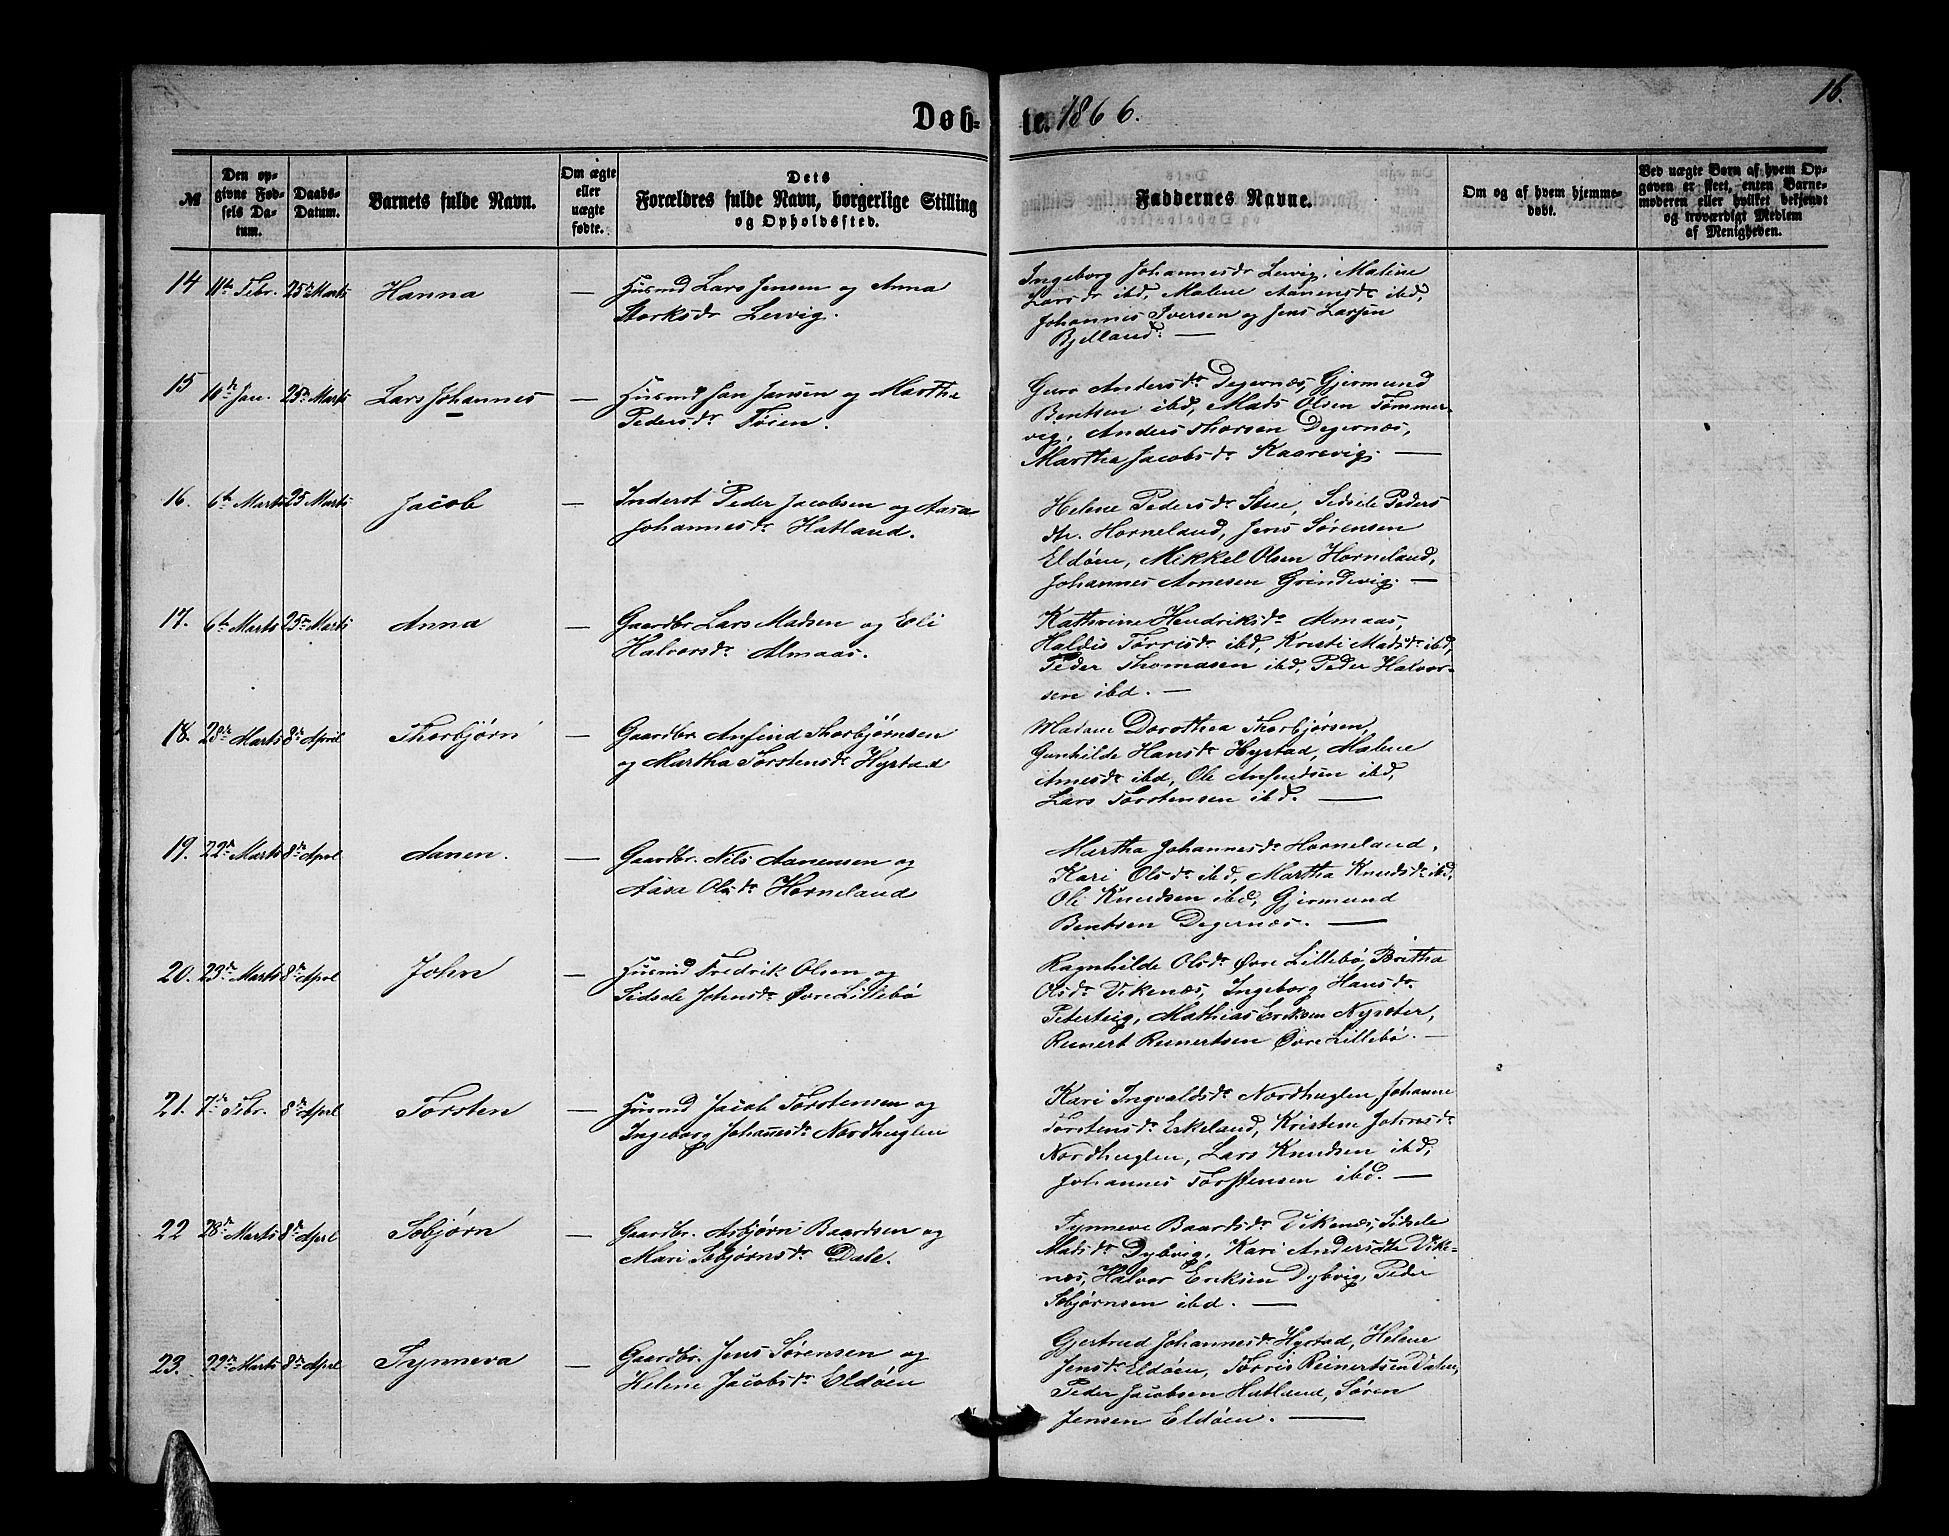 Døb-
te. 1866.
16.
№
Den op-
givne Fød-
sels Da-
tum.
Daabs-
Datum.
Barnets fulde Navn.
Om ægte
eller
uægte
fødte.
Dets
Forældres fulde Navn, borgerlige Stilling
og Opholdssted.
Faddernes Navne.
Om og af hvem hjemme-
døbt.
Ved uægte Børn af hvem Op-
gaven er skeet, enten Barne-
moderen eller hvilket bekjendt
og troværdigt Medlem
af Menigheden.
14 11te Febr. 25de Marts Hanna — Husmd Lars Jensen og Anna
Storksdr Lervig.
Ingeborg Johannesdr Lervig, Malene
Larsdr ibd, Malene Aanensdr ibd,
Johannes Iversen og Jens Larsen
Bjelland. —
15 10de Jan. 25de Marts Lars Johannes — Husmd Jan Jansen og Martha
Pedersdr Tøien.
Guro Andersdr Degernæs, Gjermund
Bentsen ibd, Mads Olsen Tømmer-
vig, Anders Thorsen Degernæs,
Martha Jacobsdr Kaarevig. —
16. 6te Marts 25 Marts Jacob — Inderst Peder Jacobsen og Aasa
Johannesdr Hatland.
Helene Pedersdr Stue, Sidsele Peders
dtr. Horneland, Jens Sørensen
Eldøen, Mikkel Olsen Horneland,
Johannes Arnesen Grindevig. —
17. 6te Marts 25de Marts Anna — Gaardbr Lars Madsen og Eli
Halvorsdr Almaas.
Kathrine Hendriksdr Almaas,
Haldis Tørrisdr ibd, Kristi Madsdr ibd,
Peder Thomasen ibd, Peder Halvor-
sen ibd. —
18. 28de Marts 8de April Thorbjørn — Gaardbr Anfind Thorbjørnsen
og Martha Torstensdr Hystad
Madame Dorothea Thorbjørsen,
Gunhilde Hansdr Hystad, Malene
Arnesdr ibd, Ole Anfindsen ibd,
Lars Torstensen ibd. —
19. 22de Marts 8de Aprl Aanen. — Gaardbr. Nils Aanensen og
Aasa Olsdr Horneland
Martha Johannesdr Horneland,
Kari Olsdr ibd, Martha Knudsdr ibd,
Ole Knudsen ibd, Gjermund
Bentsen Degernæs. —
20. 23de Marts 8de Aprl John — Husmd Fredrik Olsen og
Sidsele Johnsdr Øvre Lillebø
Ragnhilde Olsdr Øvre Lillebø, Britha
Olsdr Vikenæs, Ingeborg Hansdr
Peterteig, Mathias Eriksen Nysæter,
Reinert Reinertsen Øvre Lillebø. —
21. 7de Febr. 8de Aprl Torsten — Husmd Jacob Torstensen og
Ingeborg Johannesdr Nordhuglen
Kari Ingvaldsdr Nordhuglen, Johanne
Torstensdr Eskeland, Kristene Johnsdr
Nordhuglen, Lars Knudsen ibd,
Johannes Torstensen ibd. —
22 28de Marts 8de Aprl Sebjørn — Gaardbr. Asbjørn Baardsen og
Mari Sebjørnsdr Dale.
Synneve Baardsdr Vikenæs, Sidsele
Madsdr Dybvig, Kari Andersdtr Vike-
næs, Halvor Eriksen Dybvig, Peder
Sebjørnsen ibd. —
23. 22de Marts 8de Aprl Synneva — Gaardbr. Jens Sørensen og
Helene Jacobsdr Eldøen
Gjertrud Johannesdr Hystad, Helene
Jensdr Eldøen, Tørris Reinertsen Dalen,
Peder Jacobsen Hatland, Søren
Jensen Eldøen. —